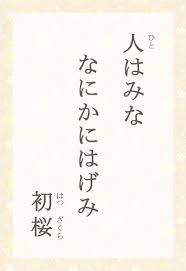 人はみな
なにかにはげみ
初桜
ひと
はつ ざくら